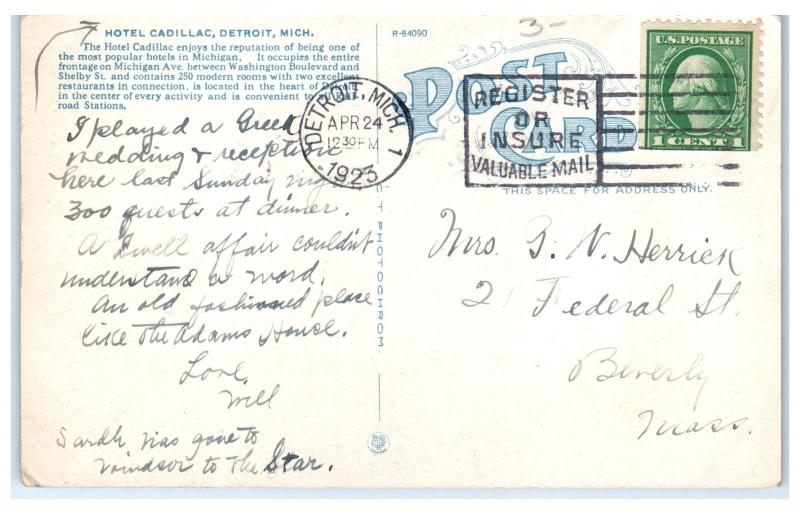 HOTEL CADILLAC, DETROIT, MICH.
The Hotel Cadillac enjoys the reputation of being one of
the most popular hotels in Michigan. It occupies the entire
frontage on Michigan Ave. between Washington Boulevard and
Shelby St. and contains 250 modern rooms with two excellent
restaurants in connection, is located in the heart of Detroit
in the center of every activity and is convenient to all Rail-
road Stations.
R-84090
3-
POST CARD
U.S. POSTAGE
1 CENT 1
DETROIT, MICH. 1
APR 24
12 30 PM
1923
REGISTER
OR
INSURE
VALUABLE MAIL
THIS SPACE FOR ADDRESS ONLY.
PHOTOCHROM.
I played a Greek
wedding & reception
here last Sunday night
300 guests at dinner.
A swell affair couldn't
understand a word.
An old fashioned place
like the Adams House.
Love
Will
has gone to
Windsor to the Star.
Mrs. N. Herrick
21 Federal St.
Beverly
Mass.